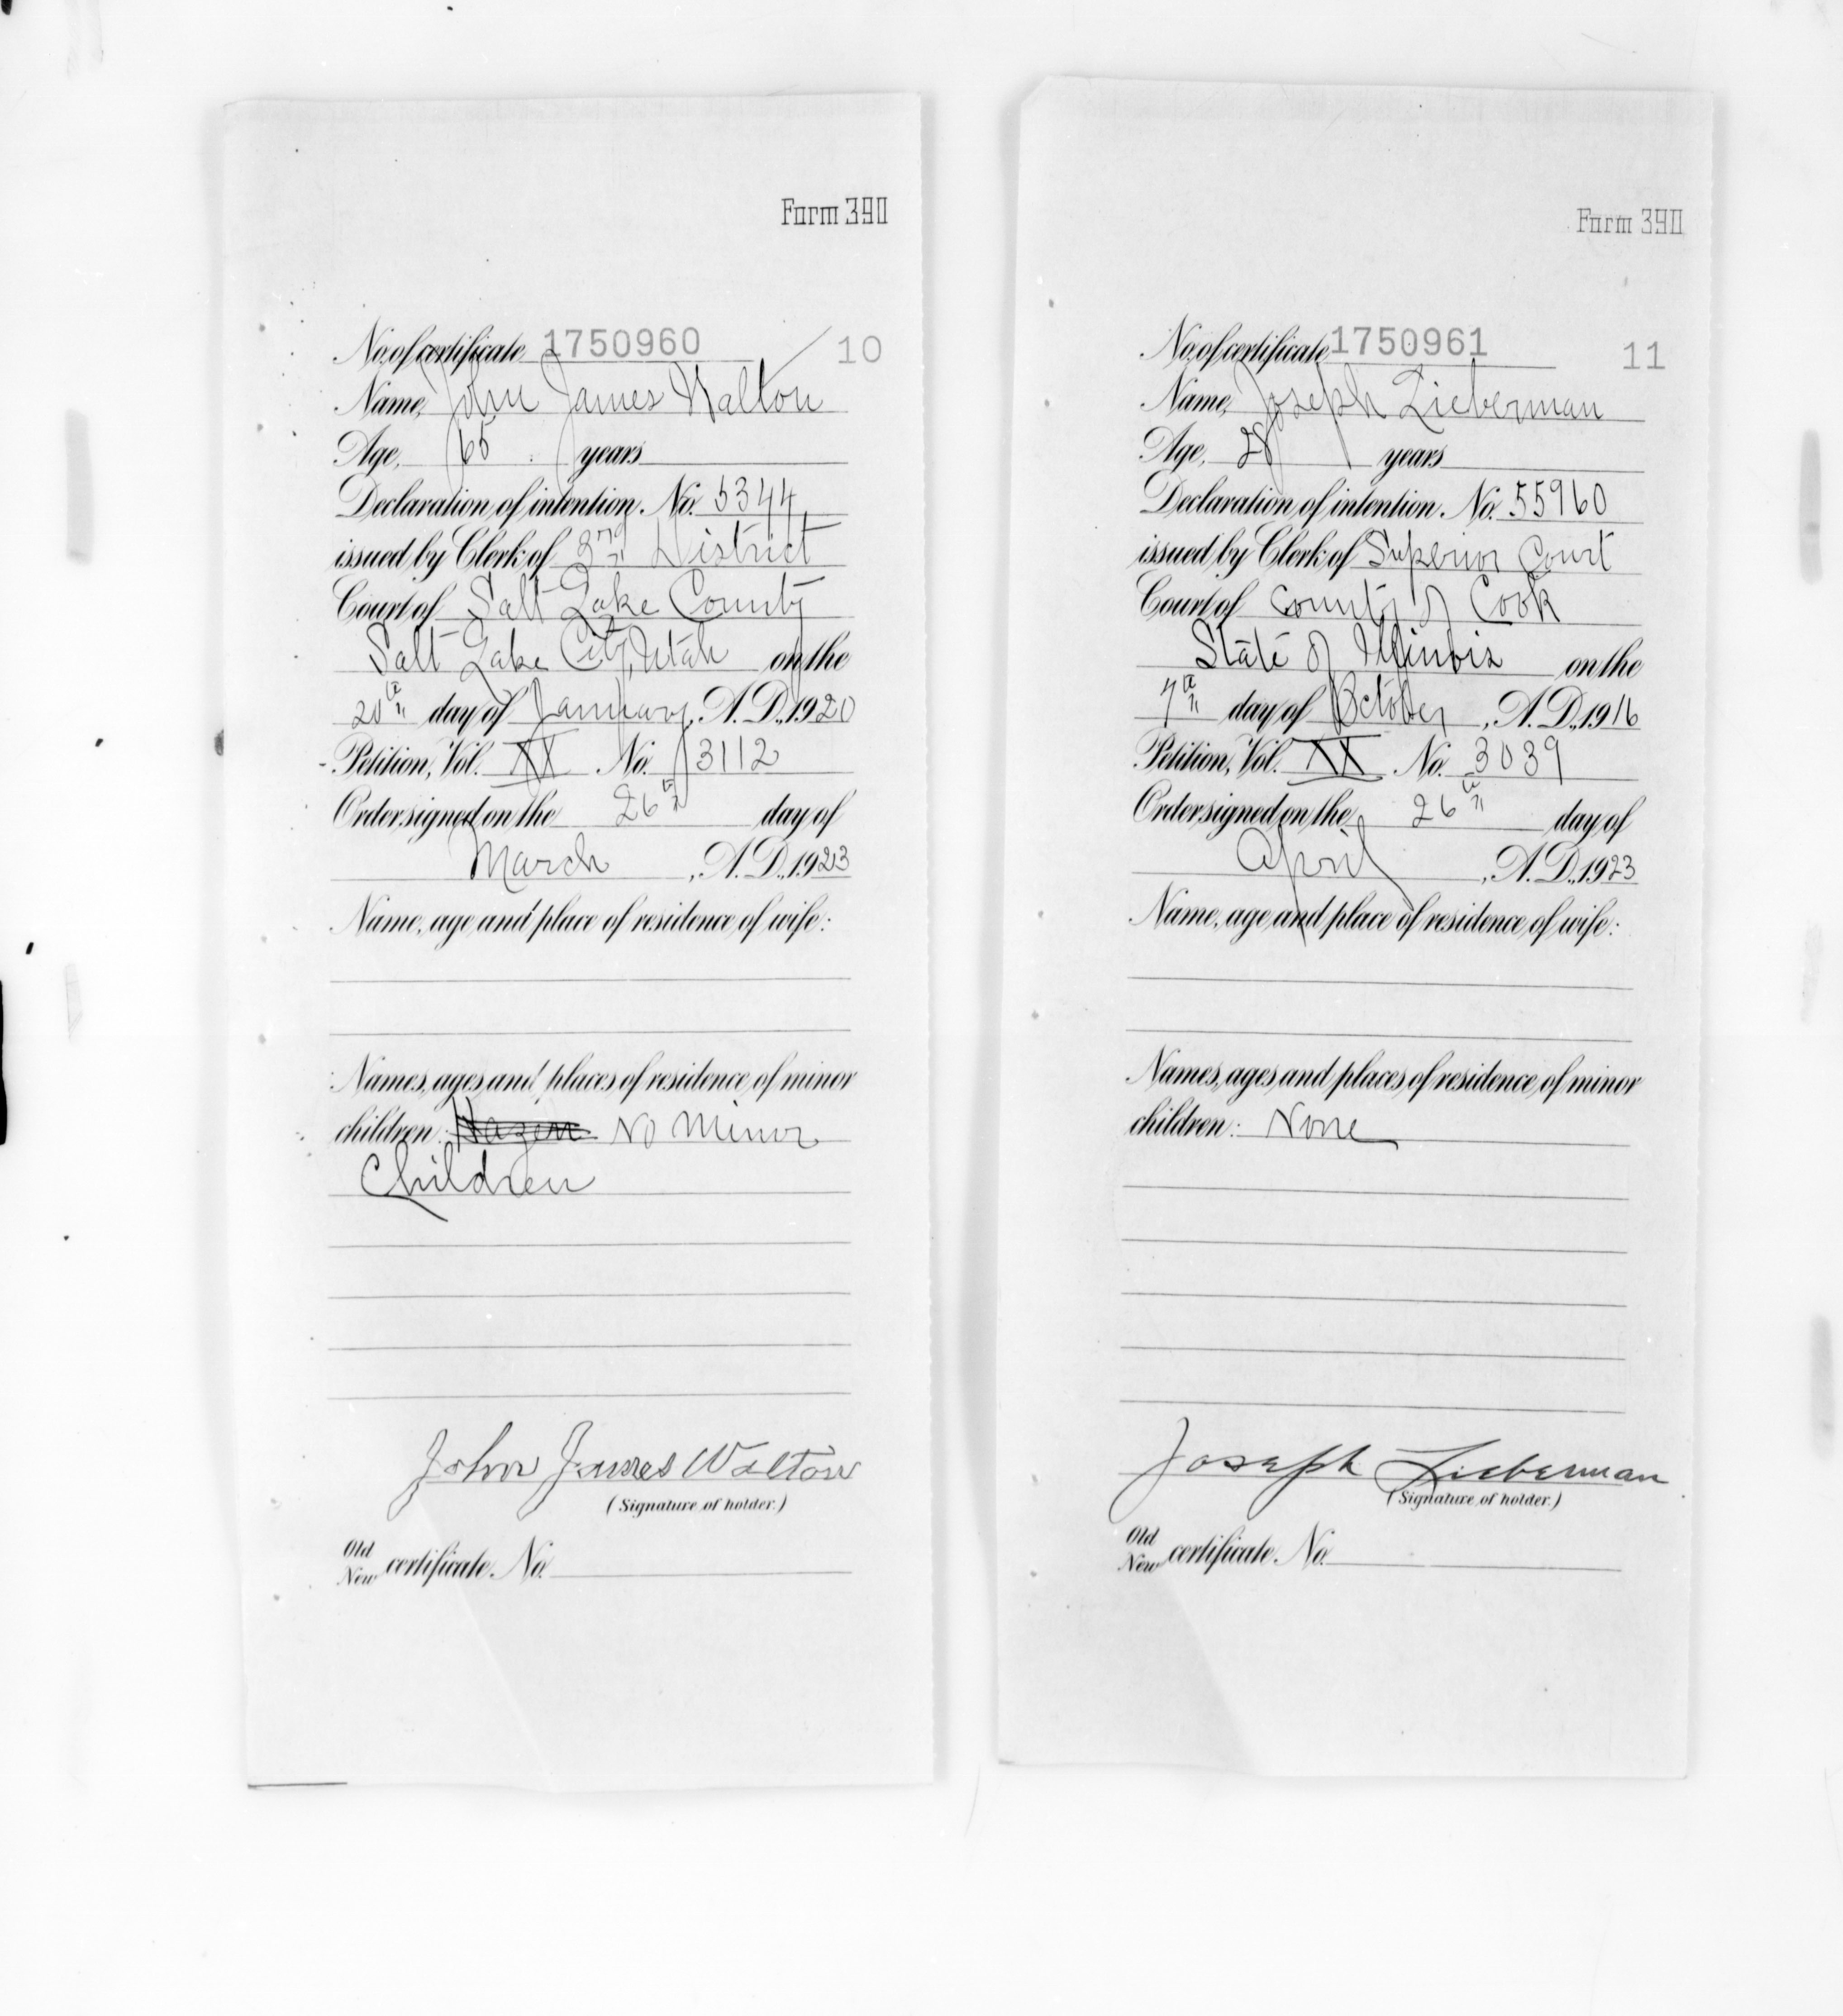 Form 390
No. of certificate 1750960 10
Name, John James Walton
Age, 65 years
Declaration of intention, No. 5344
issued by Clerk of 3rd District
Court of Salt Lake County
Salt Lake City, Utah on the
20th day of January, A.D., 1920
Petition, Vol. XX No. 3112
Order signed on the 26th day of
March, A.D., 1923
Name, age and place of residence of wife:
Names, ages and places of residence of minor
children: Hazen No Minor
Children
John James Walton
(Signature of holder.)
Old
New certificate, No.
Form 390
No. of certificate 1750961 11
Name, Joseph Lieberman
Age, 28 years
Declaration of intention, No. 55960
issued by Clerk of Superior Court
Court of County of Cook
State of Illinois on the
7th day of October, A.D., 1916
Petition, Vol. XX No. 3039
Order signed on the 26th day of
April, A.D., 1923
Name, age and place of residence of wife:
Names, ages and places of residence of minor
children: None
Joseph Lieberman
(Signature of holder.)
Old
New certificate, No.